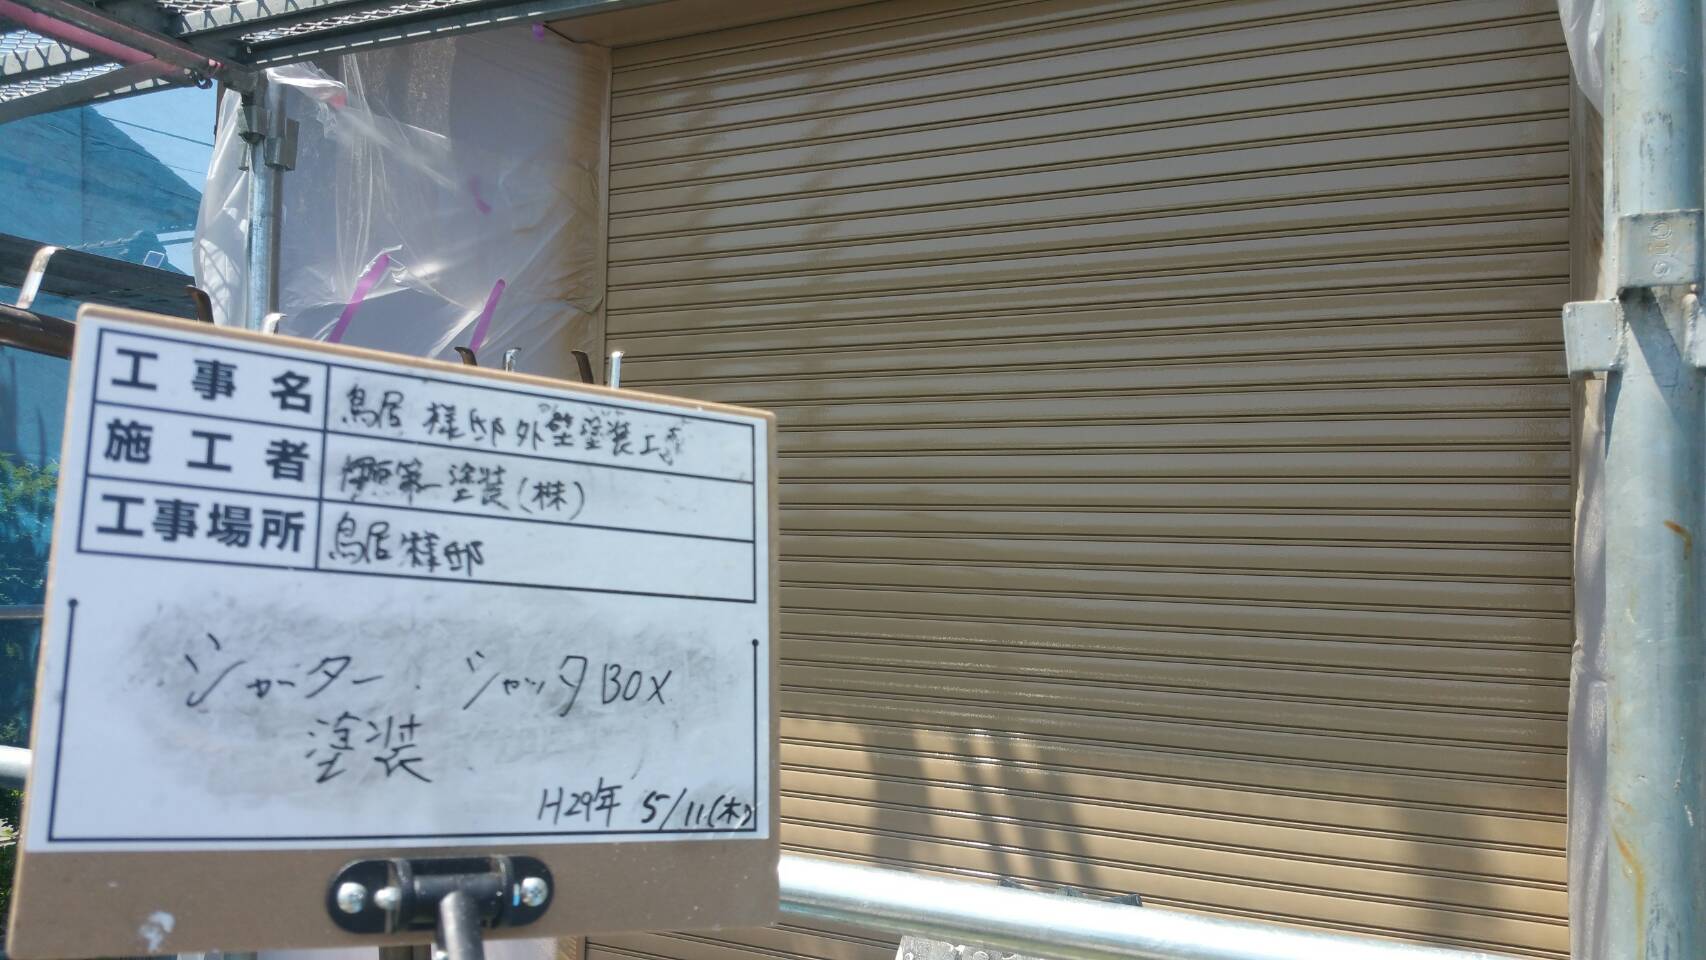 工事名 鳥居 様邸 外壁塗装工事
施工者 第一塗装(株)
工事場所 鳥居様邸
シャッター . シャッタBOX
塗装
H29年 5/11(木)